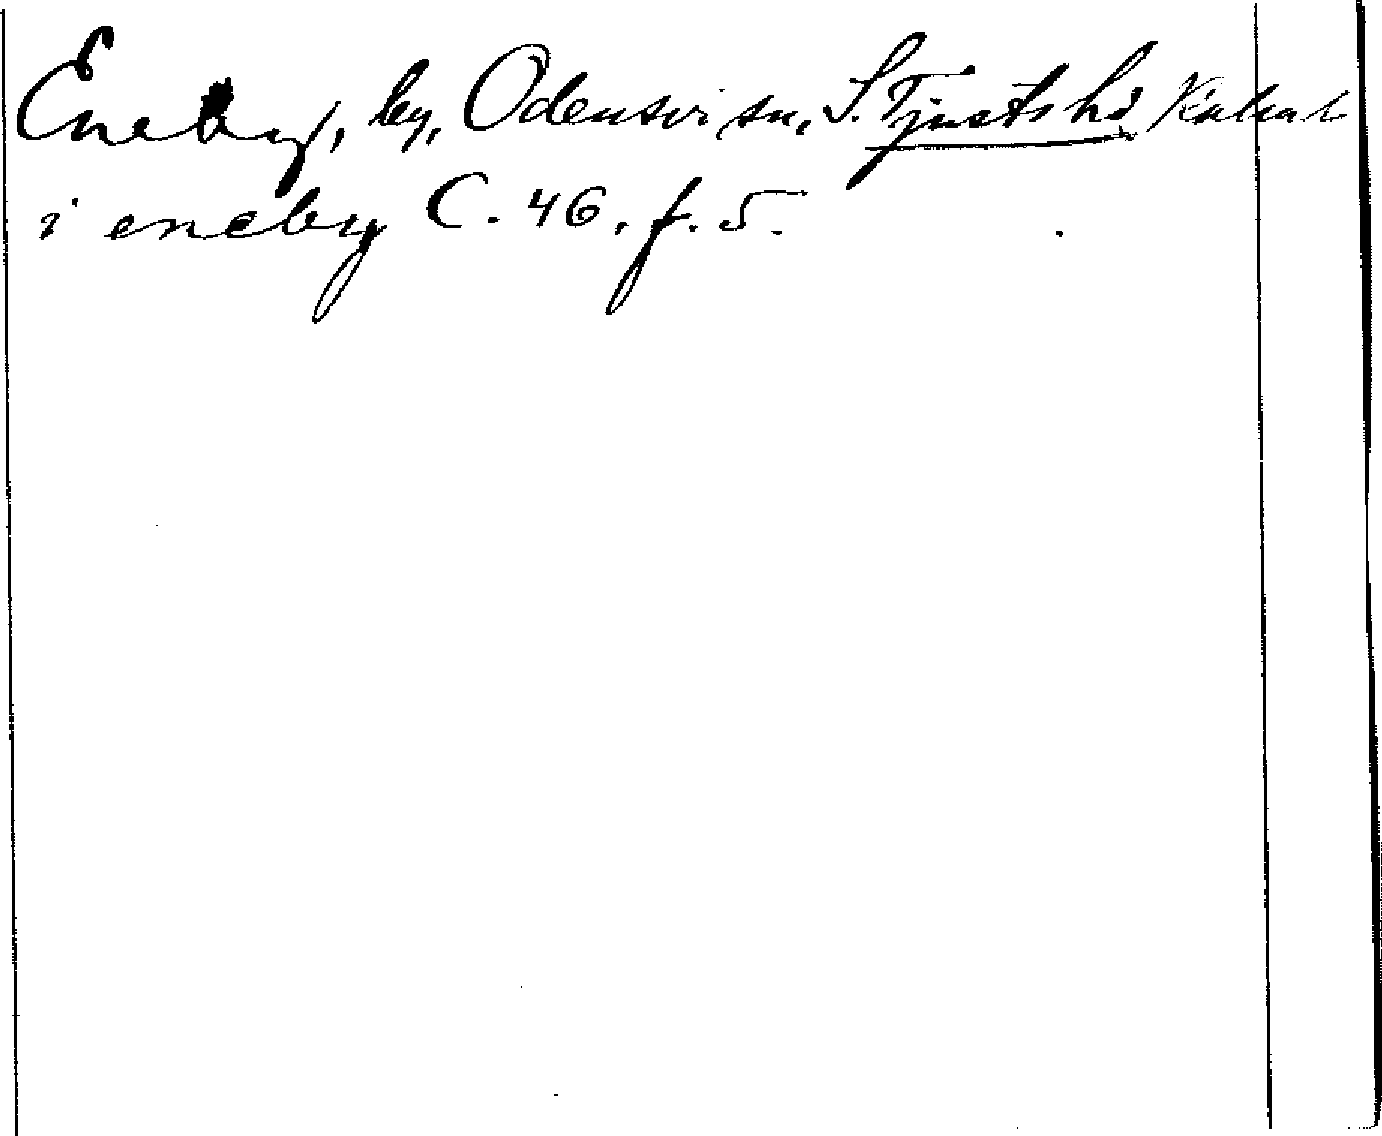 Eneby, by, Odensvi sn, S. Tjusts hd Kalm l
i eneby C. 46. f. 5.